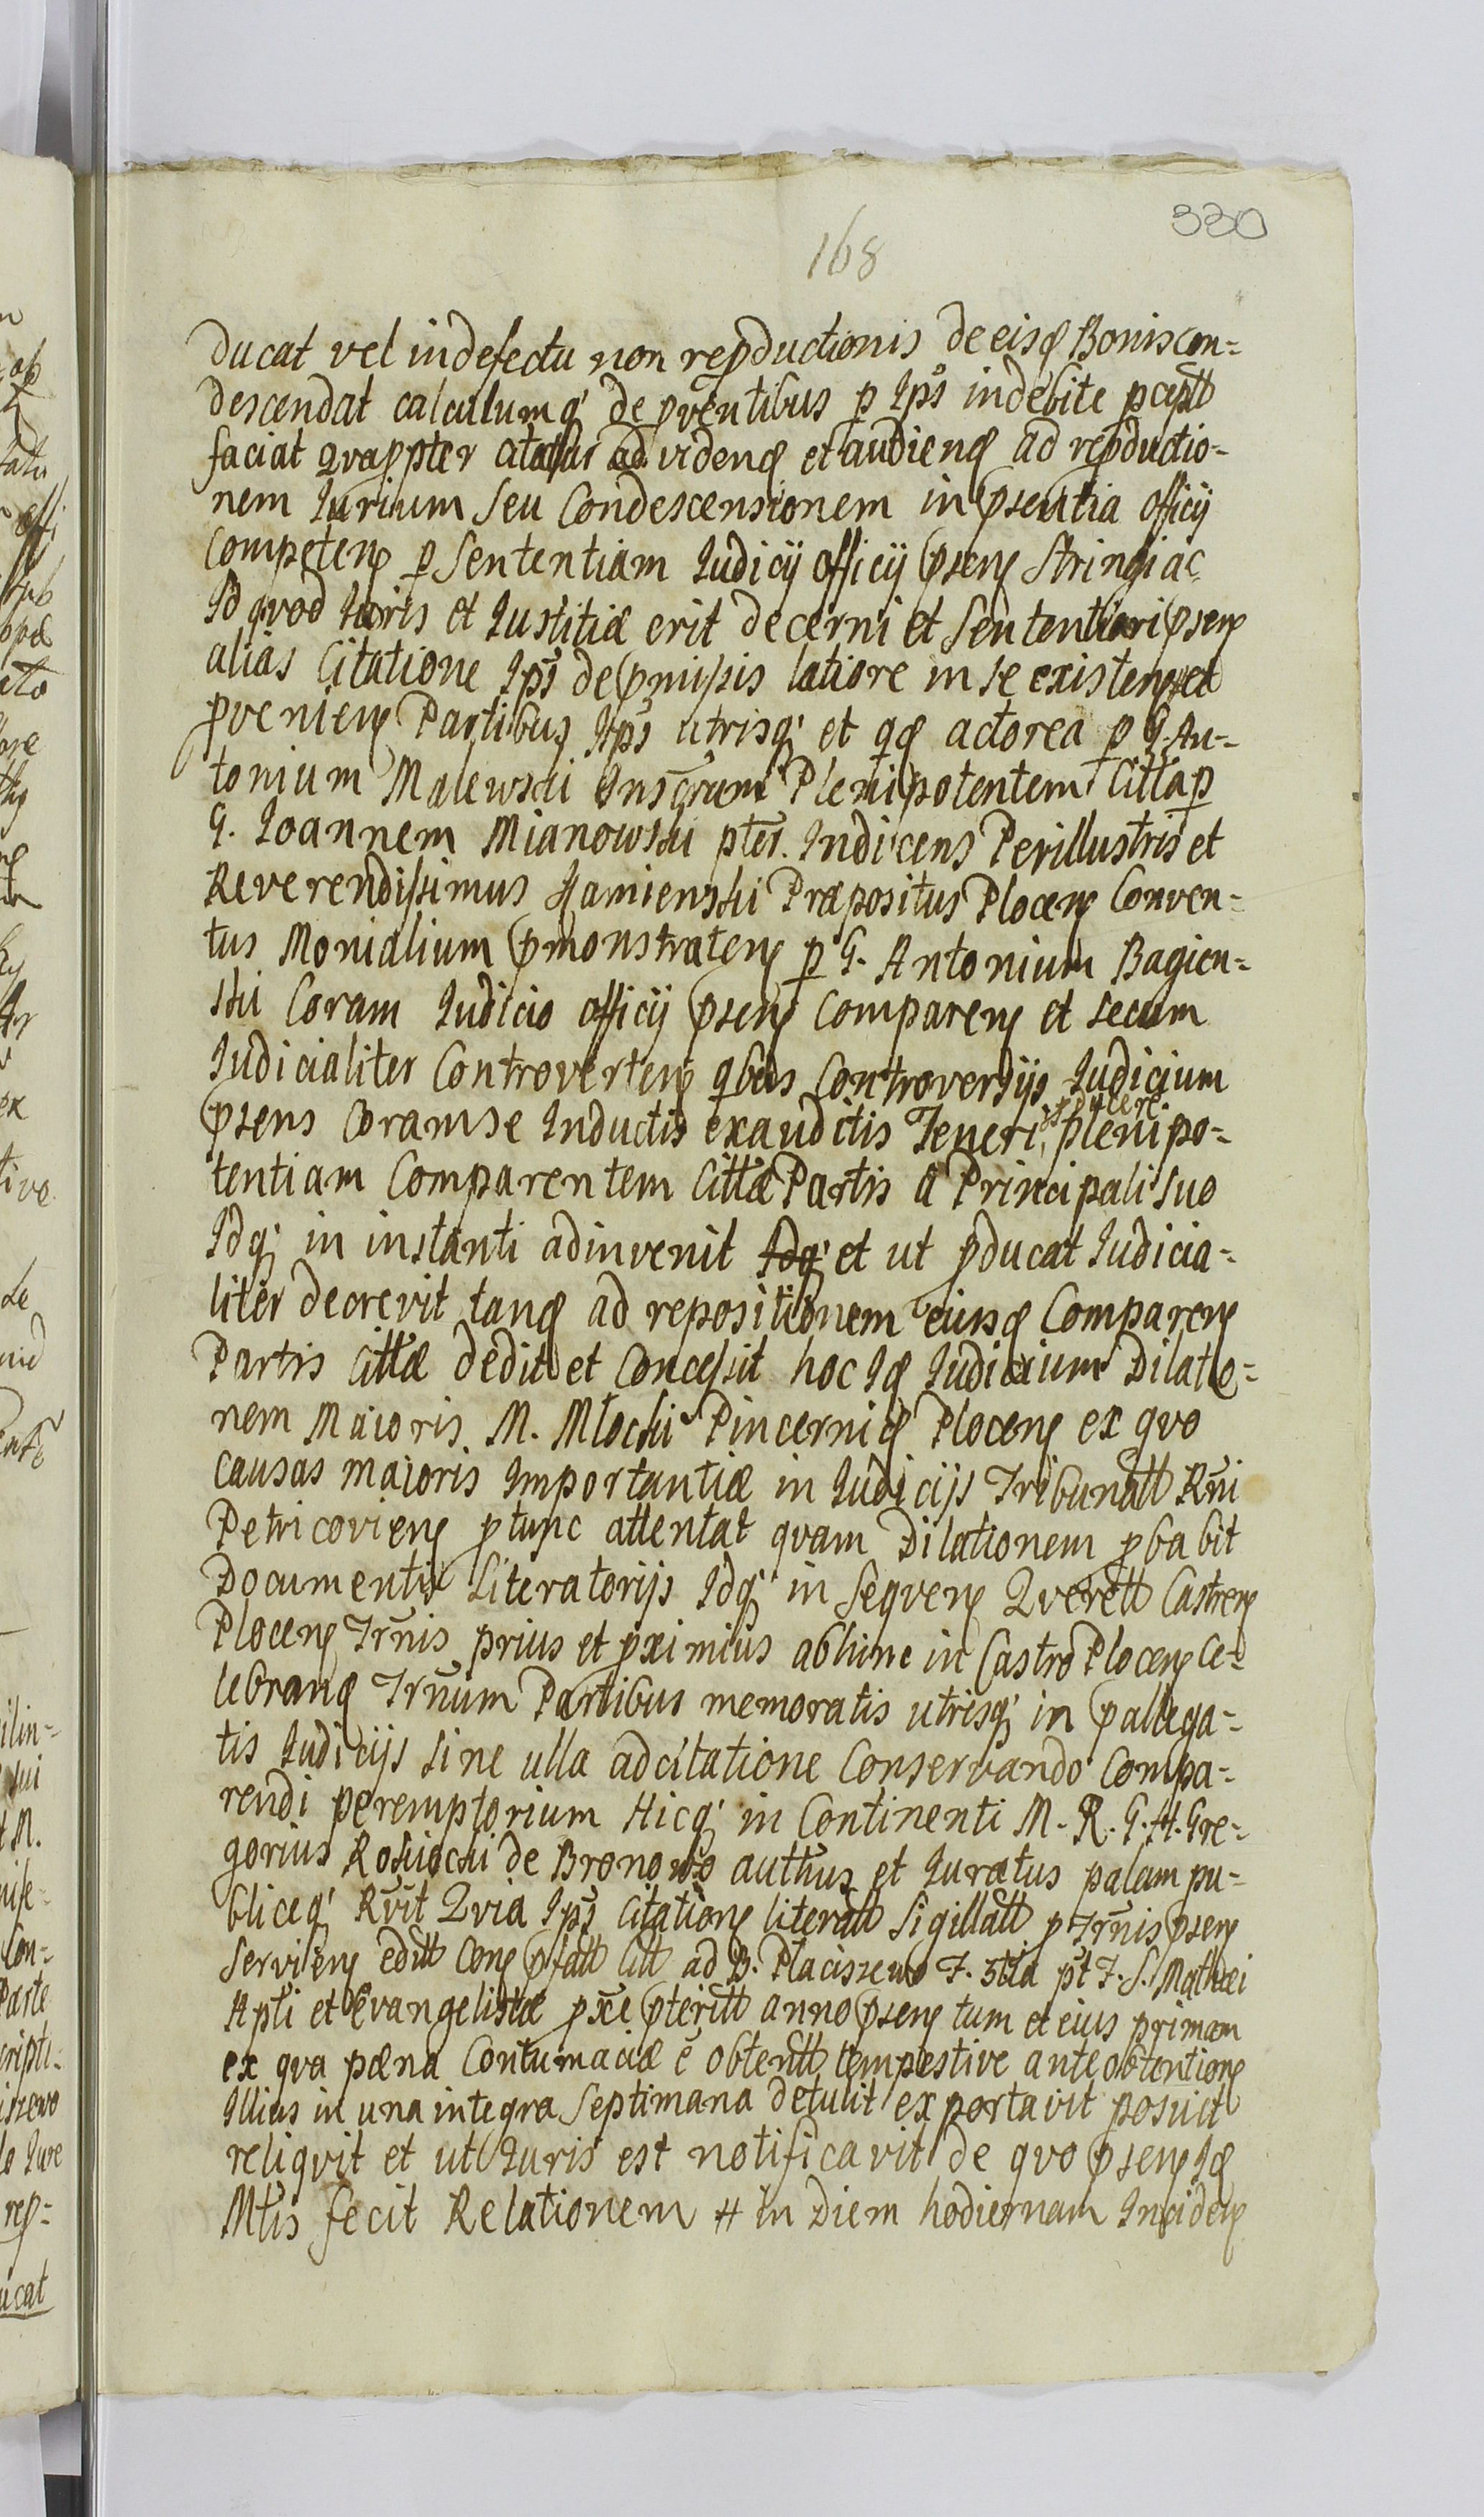 330
168
ducat vel in defectu non reproductionis de eisd Bonis con=
descendat calculumq' de proventibus p Ips indebite pceptt
faciat qvapropter citatus ad videnđ et audienđ ad reproductio-
nem Iurium seu Condescensionem in pręsentia officij
Competenꝭ p Sententiam Iudicij officij pręsenꝭ Stringi ac
Id qvod Iuris et Iustitiæ erit decerni et Sententiari pręsenꝭ
alias Citatione Ips de pręmissis latiore in se existenꝭ et
provenienꝭ Partibus Ips utrisq' et qđ actorea p G. An-
tonium Malewski Inscrum Plenipotentem Citta p
G. Ioannem Mianowski pter. Indicens Perillustris et
Reverendissimus Kamienski Præpositus Plocenꝭ Conven=
tus Monialium pręmonstratenꝭ p G. Antonium Bagien=
ski Coram Iudicio officij pręsenꝭ Comparenꝭ et secum
Iudicialiter Controvertenꝭ qbus Controversijs Iudicium
pręsens Coram se Inductis exauditis Teneri plenipo-
tentiam Comparentem Cittæ Partis a Principali suo
Idq' in instanti adinvenit Idq' et ut producat Iudicia-
liter decrevit tanđ ad repositionem eiusđ Comparenꝭ
Partis Cittæ dedit et Concessit hoc Iđ Iudicium Dilatio=
nem Maioris. M. Mlocki Pincernið Plocenꝭ ex qvo
causas maioris Importantiæ in Iudicijs Tribunalt Rni
Petricovienꝭ protunc attentat qvam Dilationem probabit
Documentis Literatorijs Idq' in Seqvenꝭ Qverett Castrenꝭ
Plocenꝭ Trnis prius et proximius abhinc in Castro Plocenꝭ Ce-
lebranđ Trnum Partibus memoratis utrisq' in pręallega-
tis Iudicijs sine ulla adcitatione Conservando Compa-
rendi peremptorium Hicq' in Continenti M. R. G. H. Gre-
gorius Rokicki de Bronowo authus et Iuratus palam pu-
bliceq' Rvit Qvia Ips Citationꝭ literatt Sigillatt p Trnis pręsenꝭ
Servienꝭ editt Conꝭ pręfatt Citt ad B. Placiszewo F. 3tia pt F. S. Mathæi
Apti et Evangelistæ proxe pręteritt anno pręsenꝭ tum et eius primam
ex qva pæna Contumaciæ e obtentt tempestive ante obtentionꝭ
Illius in una integra Septimana detulit exportavit posuit
reliqvit et ut Iuris est notificavit de qvo pręsenꝭ Iđ
Mtis fecit Relationem # in Diem hodiernam Incidenꝭ